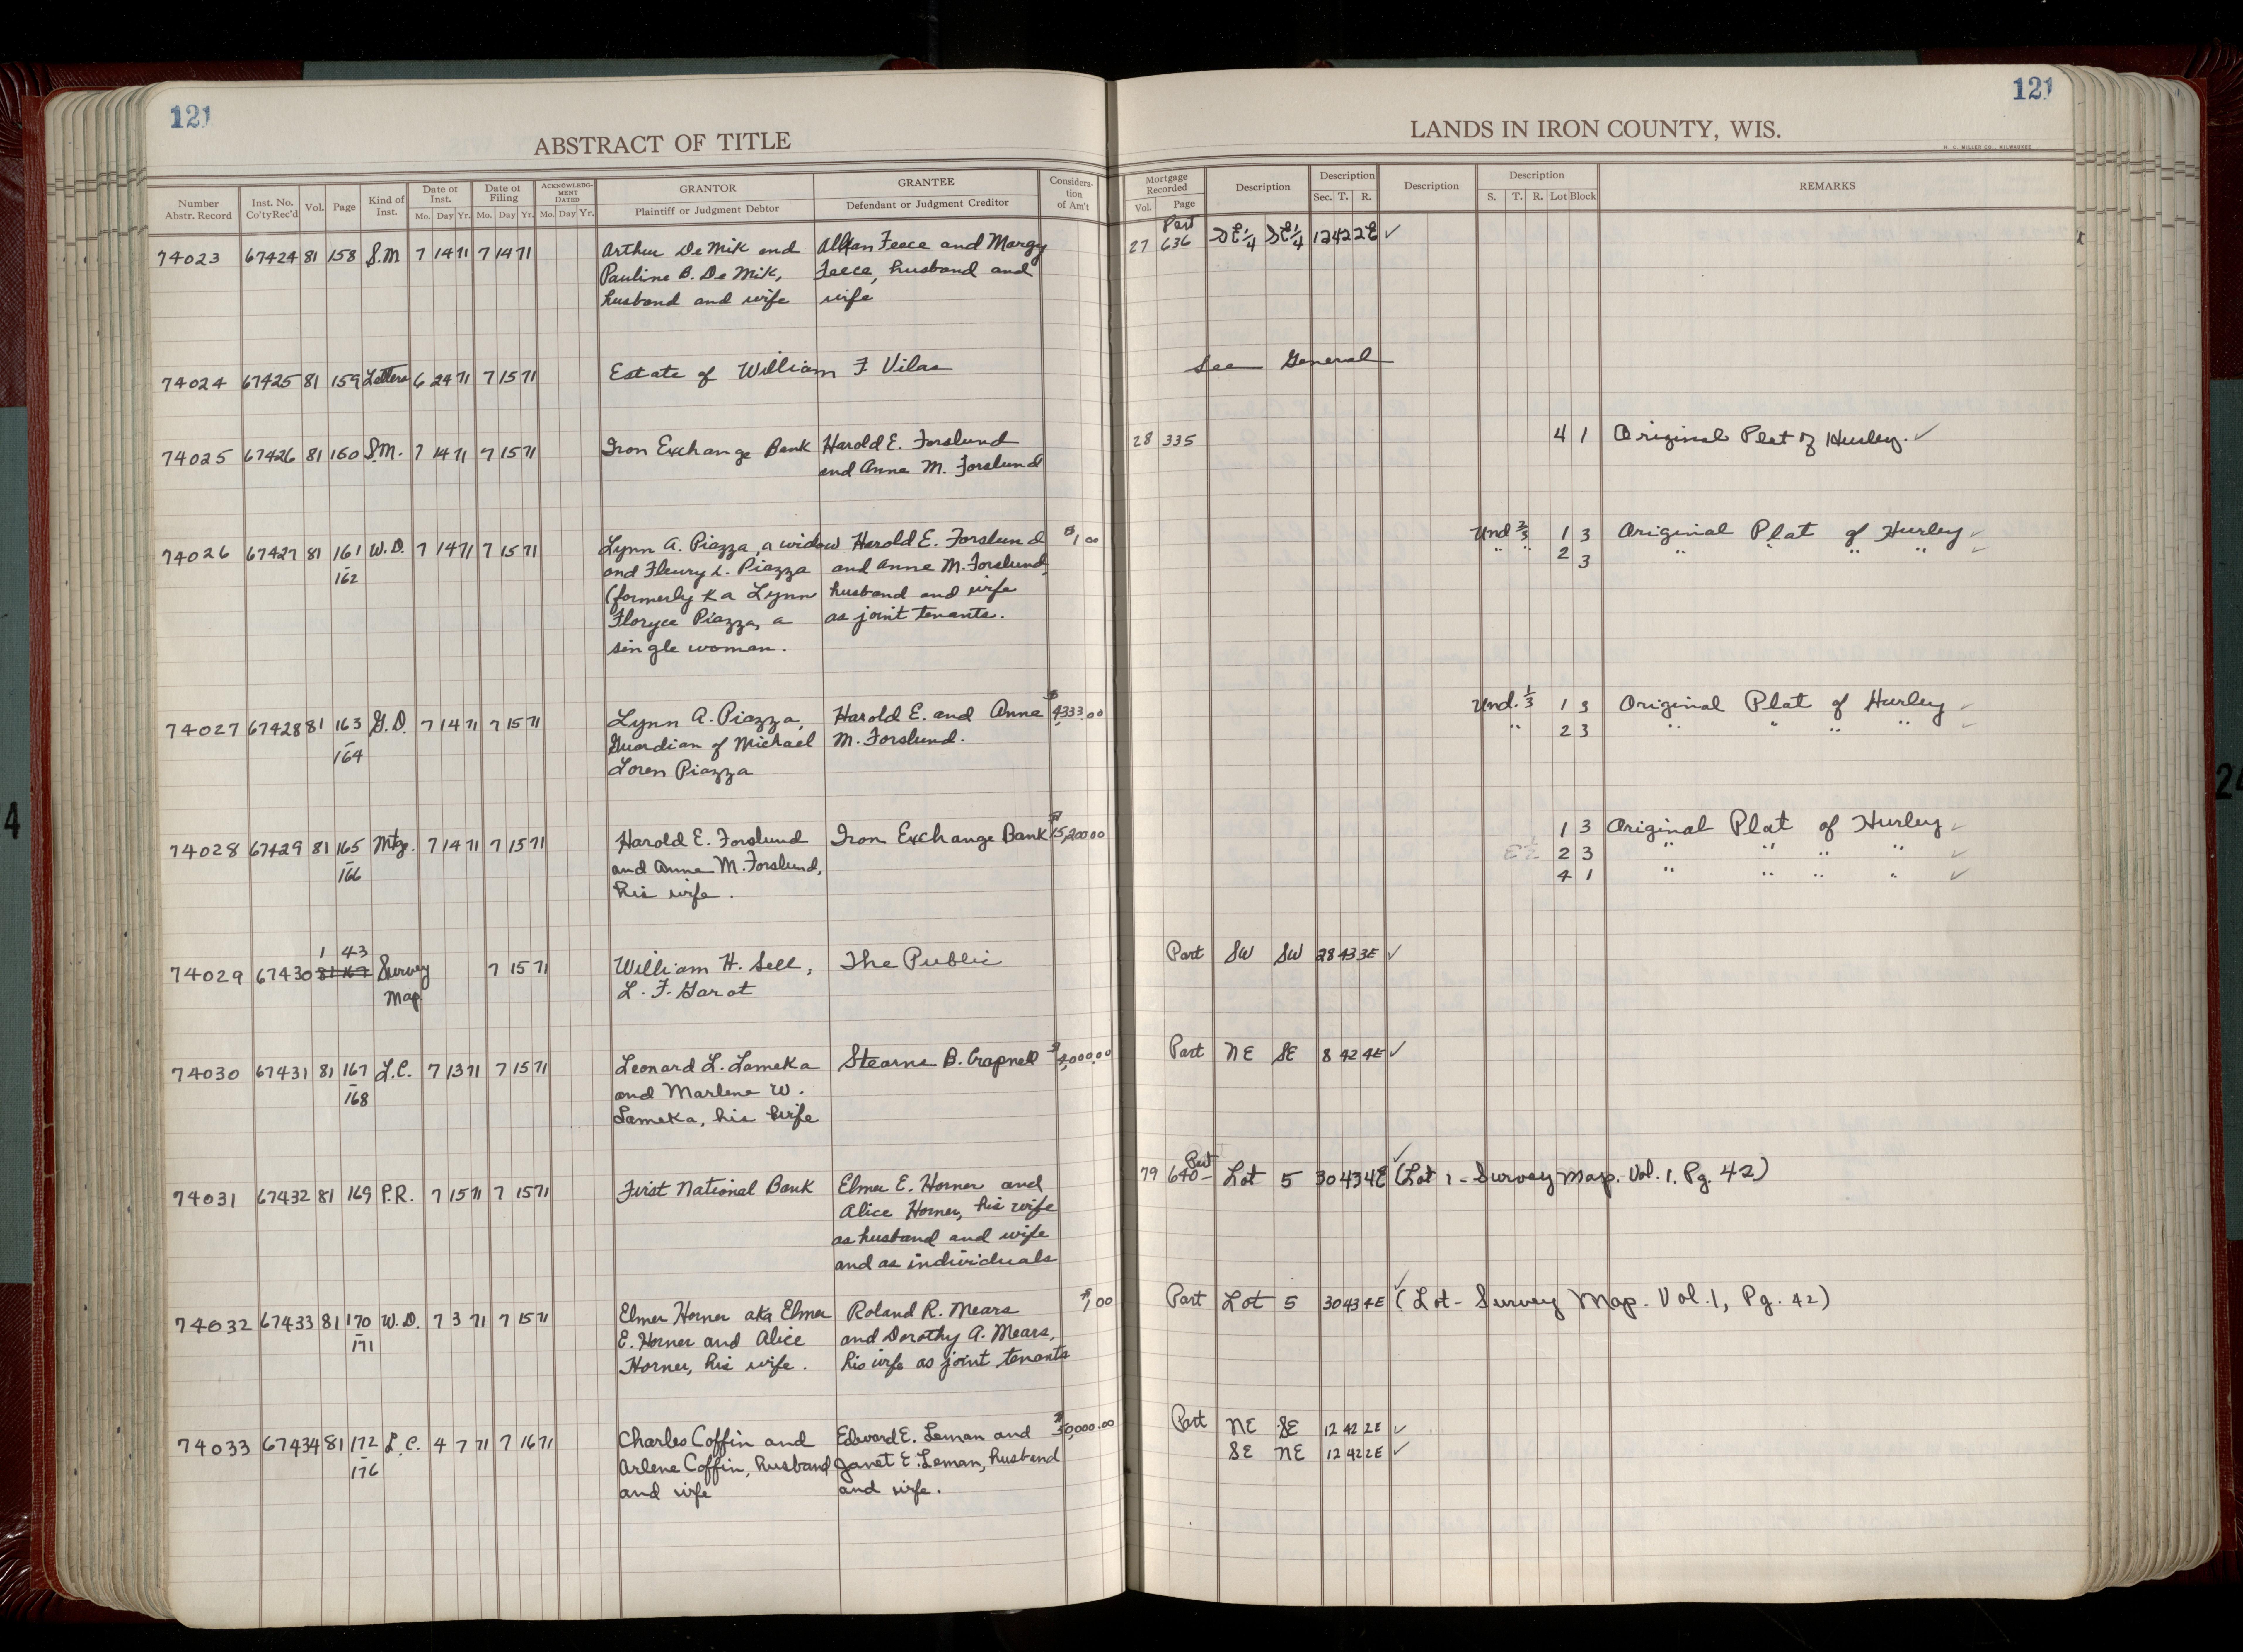 121
ABSTRACT OF TITLE
Number Abstr. Record Inst. No. Co'ty Rec'd Vol. Page Kind of Inst. Date of Inst. Mo. Day Yr. Date of Filing Mo. Day Yr. ACKNOWLEDGMENT DATED Mo. Day Yr. GRANTOR Plaintiff or Judgment Debtor GRANTEE Defendant or Judgment Creditor Consideration of Am't
74023 67424 81 158 S.M 7 14 71 7 14 71 Arthur De Mik and Allan Feece and Margy
Pauline B. De Mik, Feece, husband and
husband and wife wife
74024 67425 81 159 Letters 6 24 71 7 15 71 Estate of William F Vilas
74025 67426 81 160 S.M. 7 14 71 7 15 71 Iron Exchange Bank Harold E. Forslund
and Anne M. Forslund
74026 67427 81 161 W.D. 7 14 71 7 15 71 Lynn A. Piazza, a widow Harold E. Forslund $1,00
- 162 and Fleury L. Piazza and Anne M. Forslund,
(formerly Ka Lynn husband and wife
Floryce Piazza, a as joint tenants.
single woman.
74027 67428 81 163 G.D. 7 14 71 7 15 71 Lynn A. Piazza, Harold E. and Anne $4333.00
- 164 Guardian of Michael M. Forslund.
Loren Piazza
74028 67429 81 165 Mtg. 7 14 71 7 15 71 Harold E. Forslund Iron Exchange Bank $15,200.00
- 166 and Anne M. Forslund,
his wife.
1 43
74029 67430 81 167 Survey 7 15 71 William H. Sell, The Public
Map L. F. Garot
74030 67431 81 167 L.C. 7 13 71 7 15 71 Leonard L. Lameka Stearns B. Crapnell $4,000.00
- 168 and Marlene W.
Lameka, his wife
74031 67432 81 169 P.R. 7 15 71 7 15 71 First National Bank Elmer E. Horner and
Alice Horner, his wife
as husband and wife
and as individuals
74032 67433 81 170 W.D. 7 3 71 7 15 71 Elmer Horner aka Elmer Roland R. Mears $1,00
- 171 E. Horner and Alice and Dorothy A. Mears,
Horner, his wife. his wife as joint tenants
74033 67434 81 172 L.C. 4 7 71 7 16 71 Charles Coffin and Edward E. Leman and $30,000.00
- 176 Arlene Coffin, husband Janet E. Leman, husband
and wife and wife.
121
LANDS IN IRON COUNTY, WIS.
H. C. MILLER CO., MILWAUKEE
Mortgage Recorded Vol. Page Description Description Sec. T. R. Description Description S. T. R. Lot Block REMARKS
Part
27 636 SE¼ SE¼ 12 42 2E ✓
See General
28 335 4 1 Original Plat of Hurley. ✓
Und ⅔ 1 3 Original Plat of Hurley ✓
" " 2 3 " " " " ✓
Und. ⅓ 1 3 Original Plat of Hurley ✓
" 2 3 " " " " ✓
1 3 Original Plat of Hurley ✓
E½ 2 3 " " " " ✓
4 1 " " " " ✓
Part SW SW 28 43 3E ✓
Part NE SE 8 42 4E ✓
Part
79 640 - Lot 5 30 43 4E ✓ (Lot 1 - Survey Map. Vol. 1, Pg. 42)
Part Lot 5 30 43 4E ✓ (Lot - Survey Map. Vol. 1, Pg. 42)
Part NE SE 12 42 2E ✓
SE NE 12 42 2E ✓